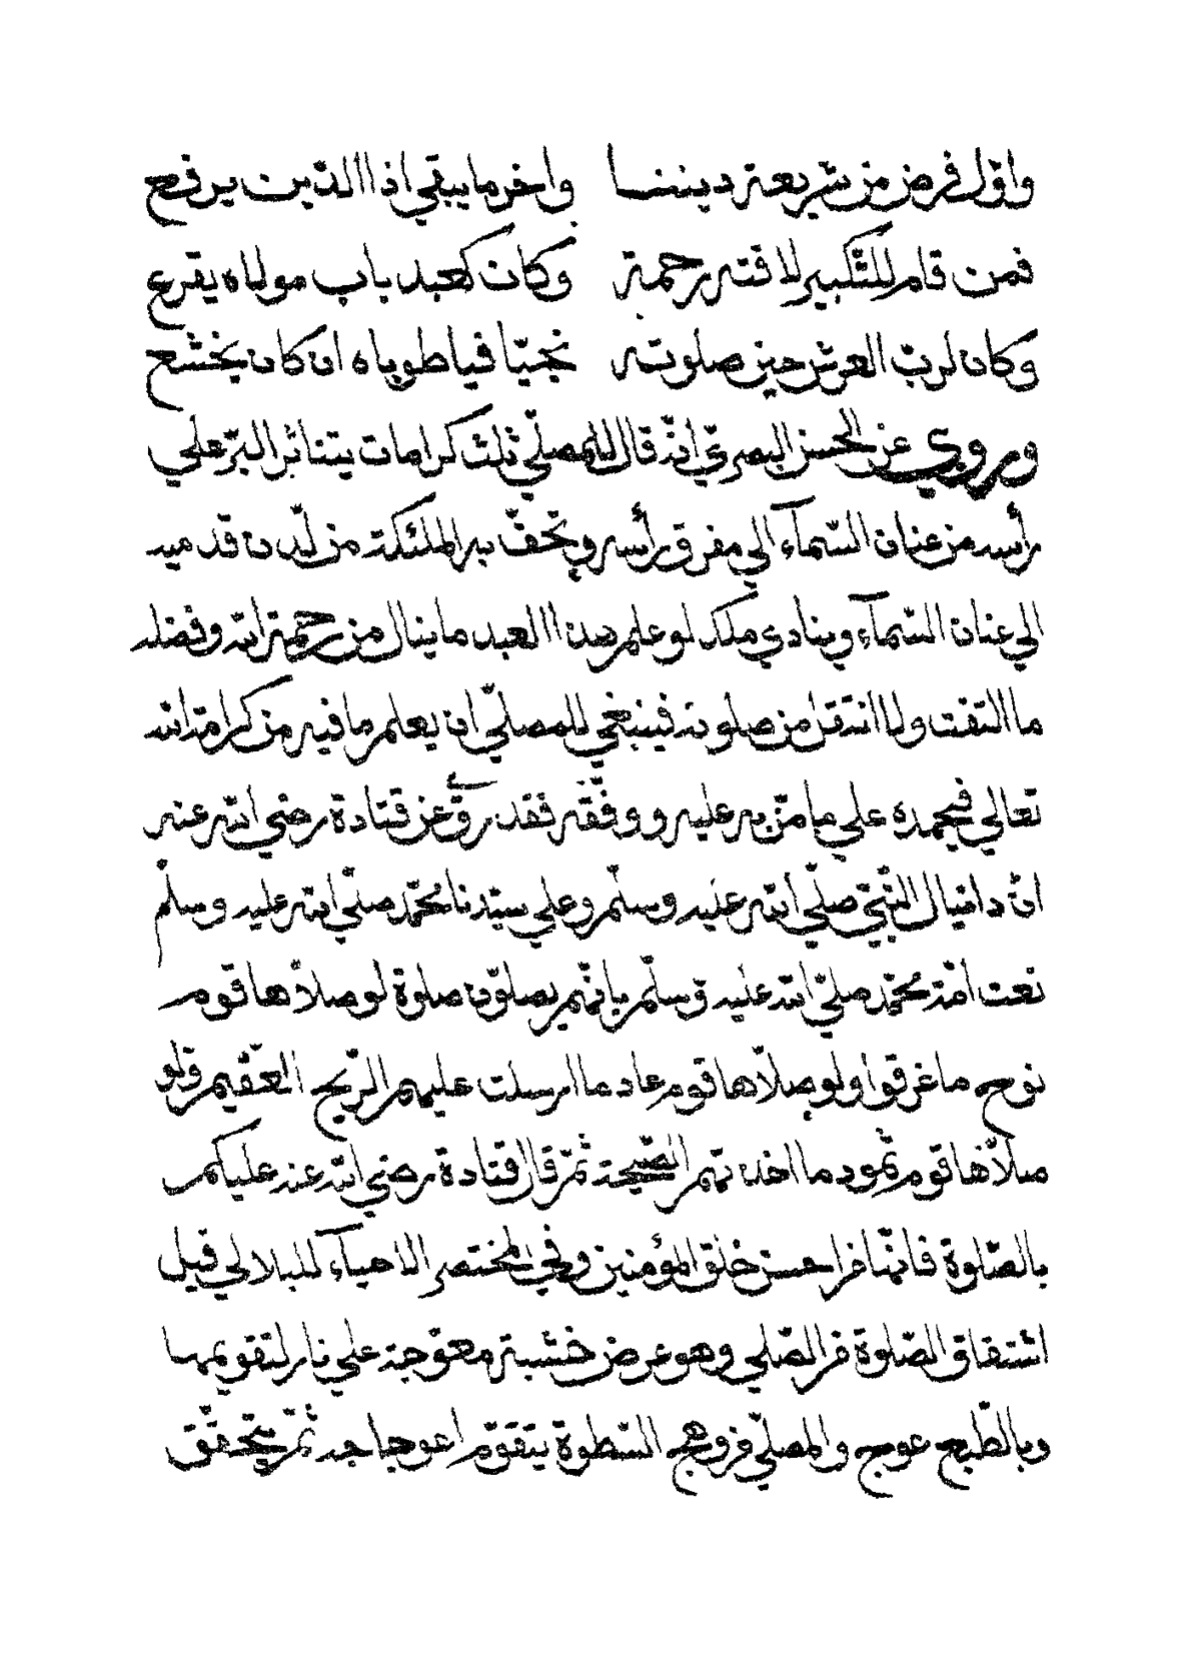 واوّل فرض من شريعة ديننا واخر ما يبقي اذا الدّين يرفع
فمن قام للتّكبير لاقته رحمة وكان كعبد باب مولاه يقرع
وكان لربّ العرش حين صلوته نجيّا فيا طوباه ان كان يخشع
وروي عن الحسن البصريّ أنّه قال للمصلّي ثلث كرامات يتناثر البرّ علي
رأسه من عنان السّمآء الي مفرق رأسه وتحفّ به الملئكة من لّدن قدميه
الي عنان السّمآء وينادي ملك لو علم هذا العبد ما ينال من رحمة الله وفضله
ما التفت ولا انتقل من صلوته فينبغي للمصلّي ان يعلم ما فيه من كرامة الله
تعالي فيحمده علي ما منّ به عليه ووفّقه فقد روي عن قتادة رضي الله عنه
انّ دانيال النّبيّ صلّي الله عليه وسلّم وعلي سيّدنا محمّد صلّي الله عليه وسلّم
نعت امّة محمّد صلّي الله عليه وسلّم بانّهم يصلّون صلوة لو صلّاها قوم
نوح ما غرقوا ولو صلّاها قوم عاد ما ارسلت عليهم الرّيح العقيم ولو
صلّاها قوم ثمود ما اخذتهم الصّيحة ثمّ قال قتادة رضي الله عنه عليكم
بالصّلوة فانّها من احسن خلق المؤمنين وفي المختصر الاحيآء للبلالي قيل
اشتقاق الصّلوة من الصّلي وهو عرض خشبة معوّجة علي نار لتقويمها
وبالطّبع عوج والمصلّي من وهج السّطوة يتقوّم اعوجاجه ثمّ يتحقّق